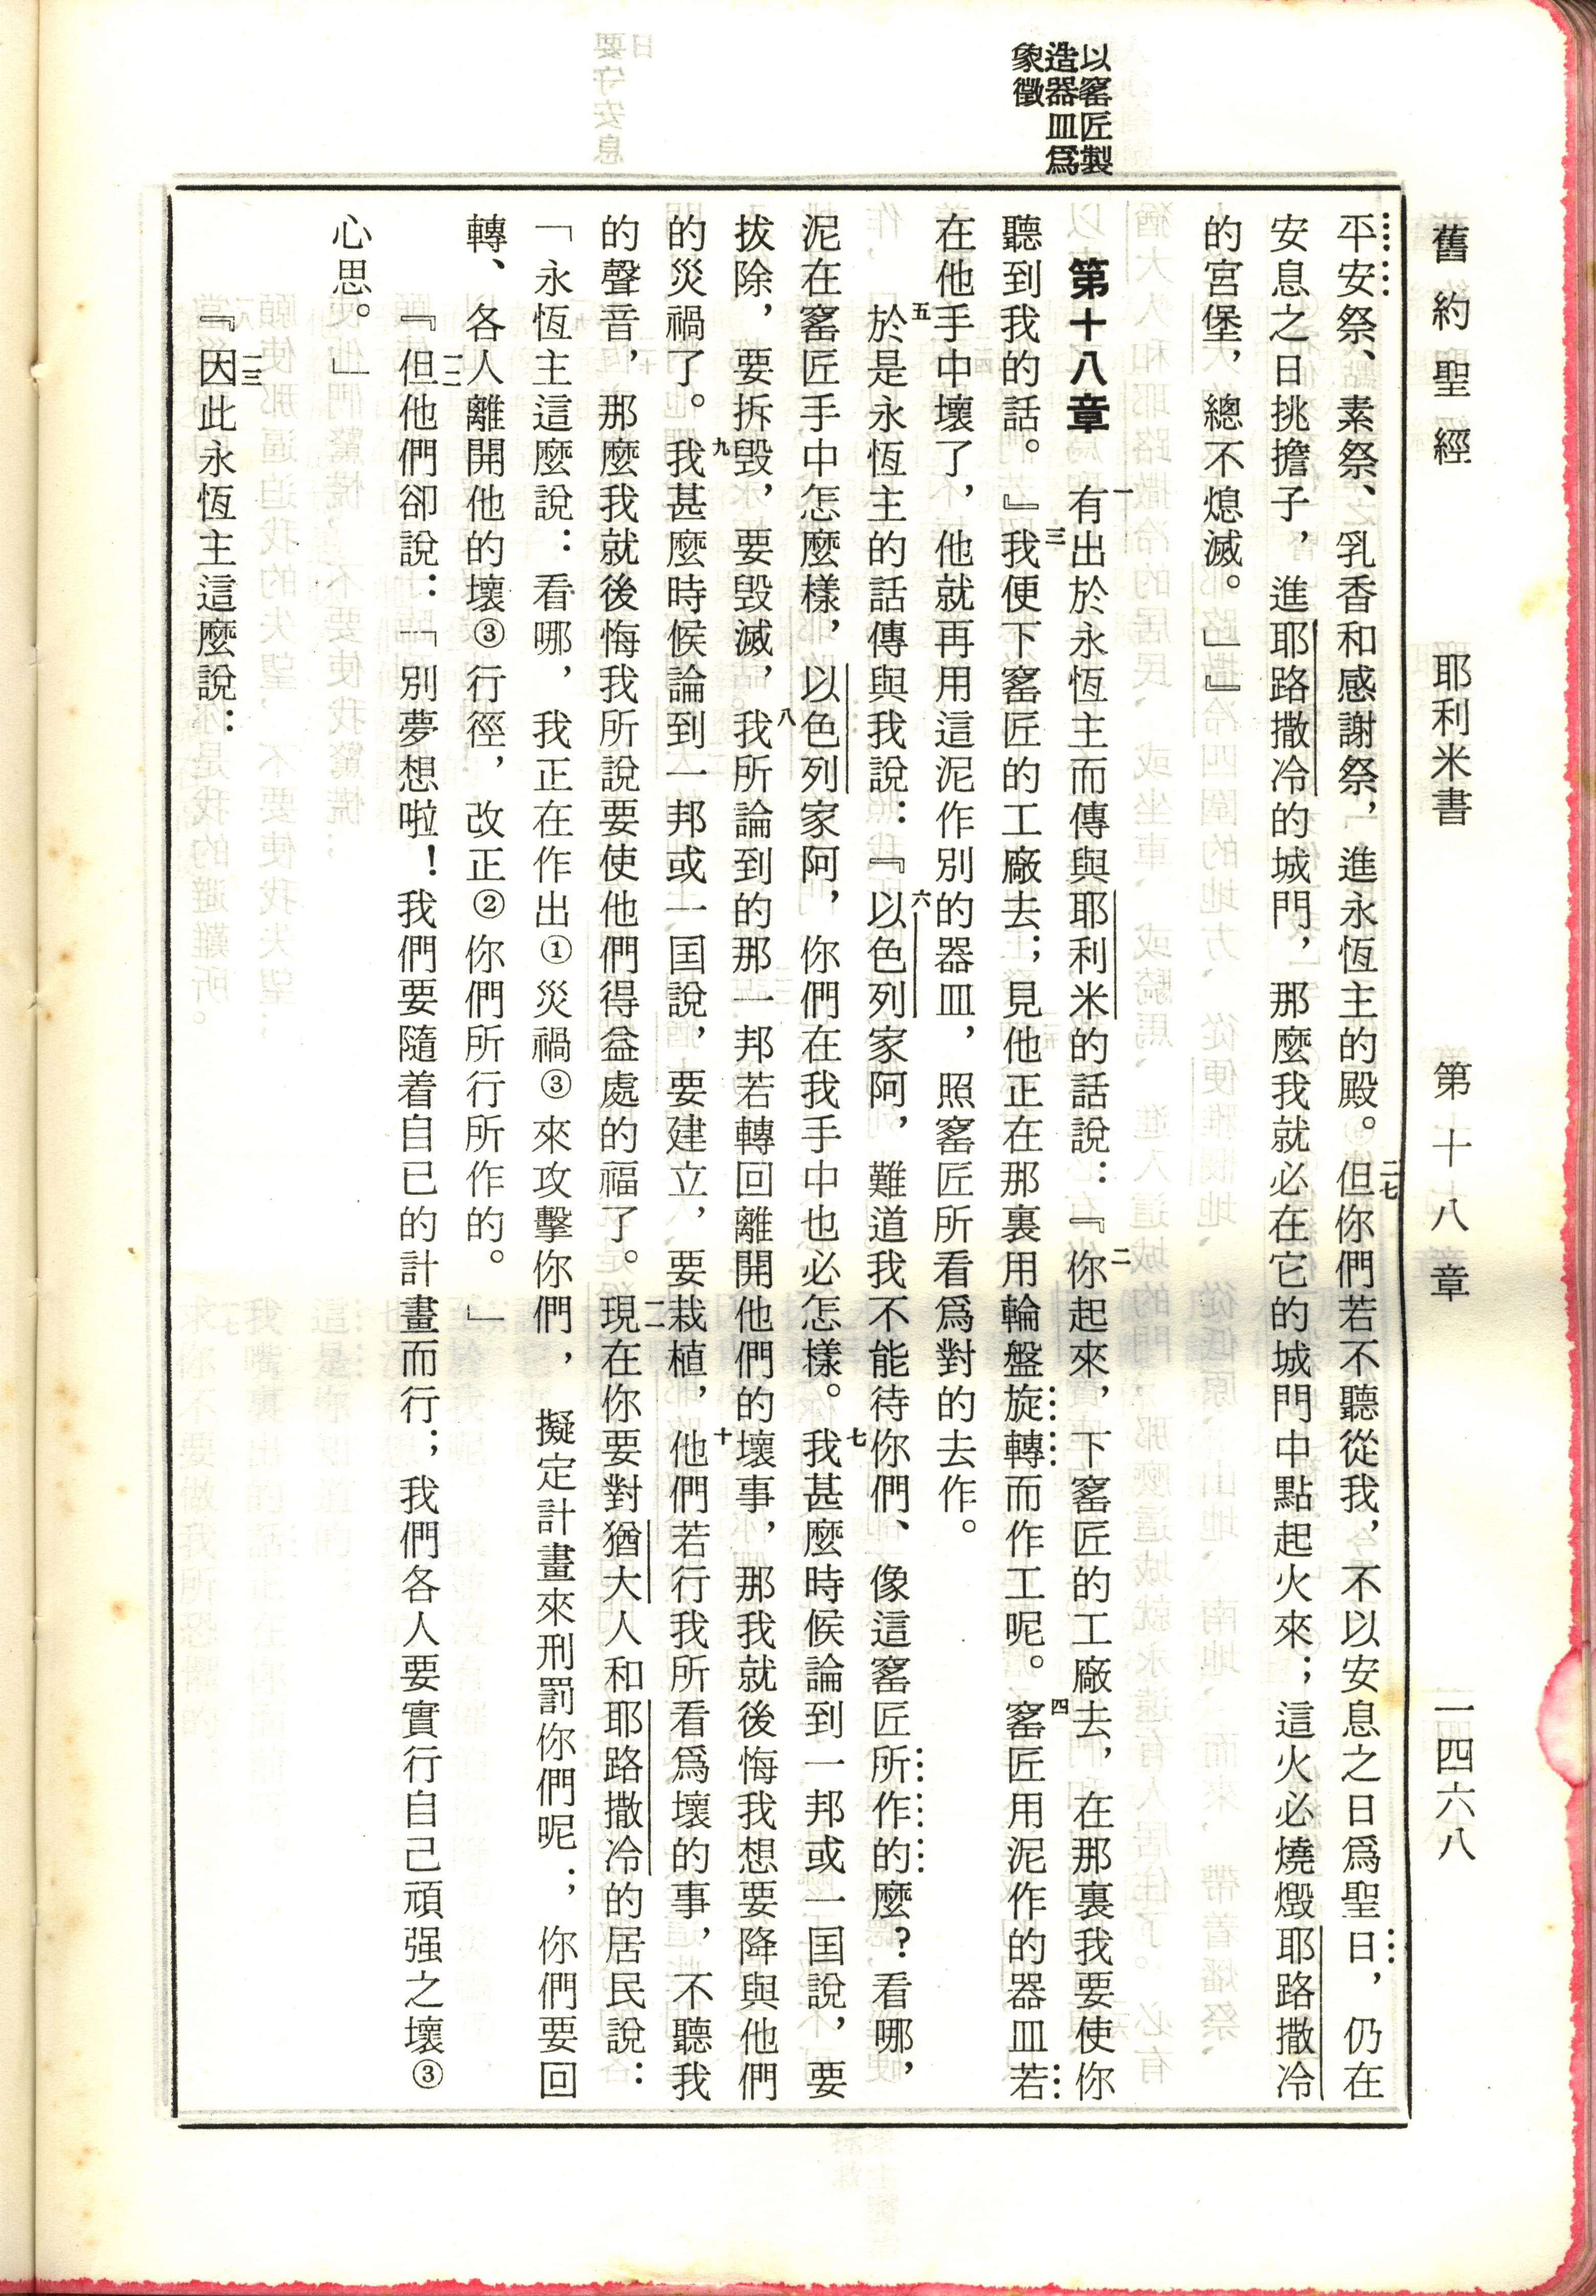 舊約聖經　耶利米書　第十八章　一四六八
以窰匠製
造器皿爲
象徵
平安祭、素祭、乳香和感謝祭，進永恆主的殿。二七但你們若不聽從我，不以安息之日爲聖日，仍在
安息之日挑擔子，進耶路撒冷的城門，那麼我就必在它的城門中點起火來；這火必燒燬耶路撒冷
的宮堡，總不熄滅。」』
第十八章　一有出於永恆主而傳與耶利米的話說：『二你起來，下窰匠的工廠去，在那裏我要使你
聽到我的話。』三我便下窰匠的工廠去；見他正在那裏用輪盤旋轉而作工呢。四窰匠用泥作的器皿若
在他手中壞了，他就再用這泥作別的器皿，照窰匠所看爲對的去作。
五於是永恆主的話傳與我說：『六以色列家阿，難道我不能待你們、像這窰匠所作的麼？看哪，
泥在窰匠手中怎麼樣，以色列家阿，你們在我手中也必怎樣。七我甚麼時候論到一邦或一国說，要
拔除，要拆毀，要毀滅，八我所論到的那一邦若轉回離開他們的壞事，那我就後悔我想要降與他們
的災禍了。九我甚麼時候論到一邦或一国說，要建立，要栽植，十他們若行我所看爲壞的事，不聽我
的聲音，那麼我就後悔我所說要使他們得益處的福了。一一現在你要對猶大人和耶路撒冷的居民說：
「永恆主這麼說：看哪，我正在作出①災禍③來攻擊你們，擬定計畫來刑罰你們呢；你們要回
轉、各人離開他的壞③行徑，改正②你們所行所作的。」
一二『但他們卻說：「別夢想啦！我們要隨着自己的計畫而行；我們各人要實行自己頑强之壞③
心思。」
一三『因此永恆主這麼說：